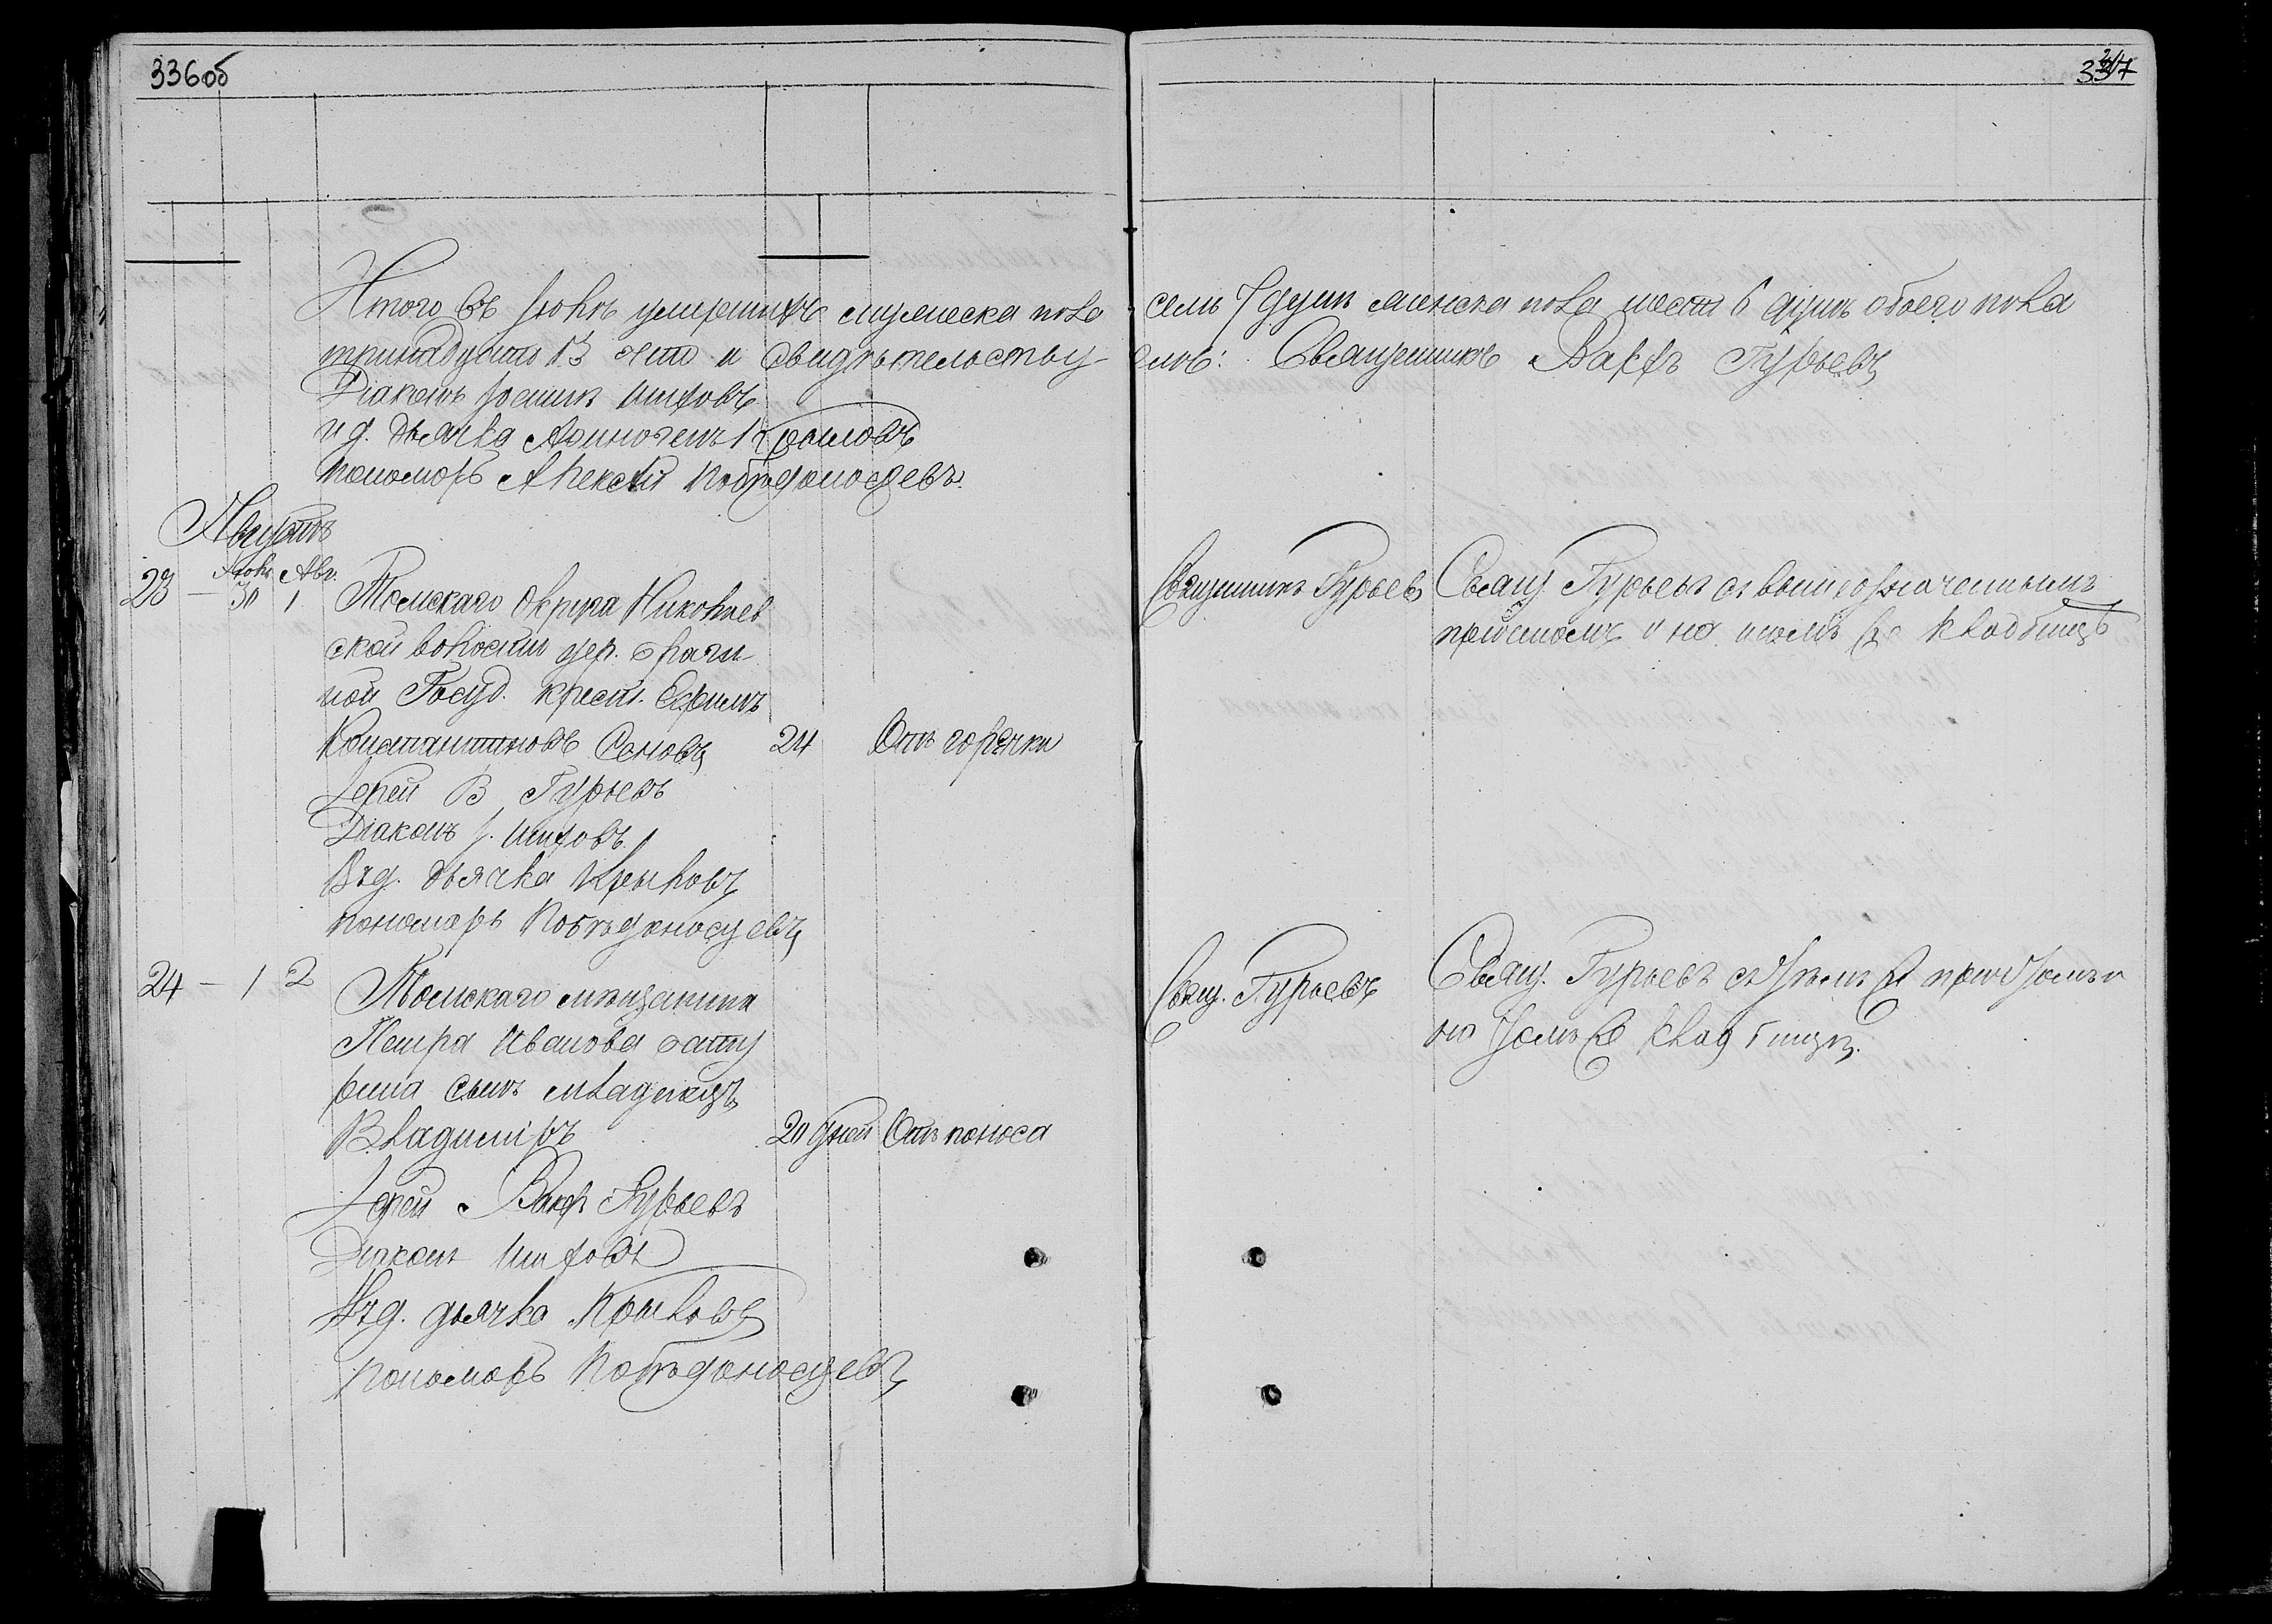 336об
337
Итого въ Іюлѣ умершихъ мужеска пола семь 7 душъ женска пола шесть 6 душъ обоего пола
тринадцать 13 что и свидѣтельствуемъ: Священникъ Вакхъ Гурьевъ
Діаконъ Іоаннъ
и д. дьячка Крыловъ
пономарь Алексѣй Побѣдоносцевъ.
Августъ
Іюль Авг.
23 – 30 1 Томскаго Округа Николаев
ской волости дер.
ной Госуд. крест. Ефимъ
Константиновъ Сѣновъ 24 Отъ горячки
Іерей В Гурьевъ
Діаконъ І.
дьячка Крыловъ
пономарь Побѣдоносцевъ
Священникъ Гурьевъ
Свящ. Гурьевъ съ вышеозначеннымъ
причтомъ на кладбищѣ
24 – 1 2 Томскаго мѣщанина
Петра Иванова
сынъ младенецъ
Владиміръ 20 дней Отъ поноса
Іерей Вакхъ Гурьевъ
Діаконъ
дьячка Крыловъ
пономарь Побѣдоносцевъ
Свящ. Гурьевъ
Свящ. Гурьевъ съ тѣмъ же причтомъ и
на томъ же кладбищѣ.